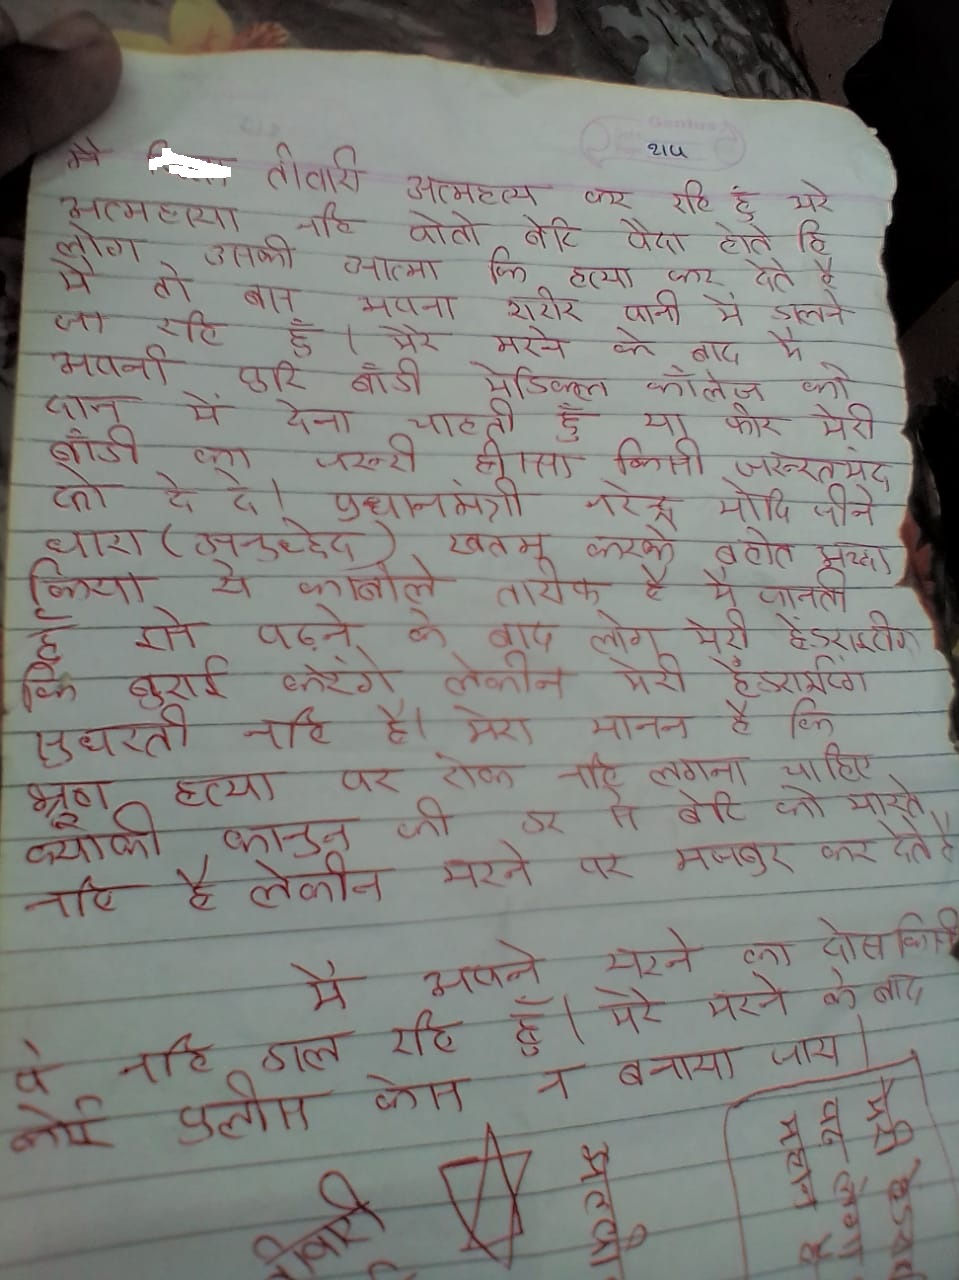 થાપ
मै तीवारी अत्महत्य कर रहि हूं मेरे
अत्महत्या नहि वोतो बेटि पैदा होते हि
लोग उसकी आत्मा कि हत्या कर देते है
मै तो बस अपना शरीर पानी में डालने
जा रहि हुँ । मेरे मरने के बाद मै
अपनी पुरि बॉडी मेडिकल कॉलेज को
दान में देना चाहती हुँ या फीर मेरी
बॉडी का जरूरी हीस्सा किसी जरूरतमंद
को दे दे। प्रधानमंत्री नरेन्द्र मोदि जीने
धारा (अनुच्छेद) खतम करके बहोत अच्छा
किया ये काबीले तारीफ है मै जानती
हुँ इसे पढ़ने के बाद लोग मेरी हेंडराइटींग
कि बुराई करेंगे लेकीन मेरी हैंडराईटिंग
सुधरती नहि है। मेरा मानन है कि
भ्रूण हत्या पर रोक नहि लगना चाहिए
क्योकी कानुन की डर से बेटि को मारते
नहि है लेकीन मरने पर मजबुर कर देते है
मै अपने मरने का दोस किसी
पे नहि डाल रहि हुँ। मेरे मरने के बाद
कोई पुलीस केस न बनाया जाय।